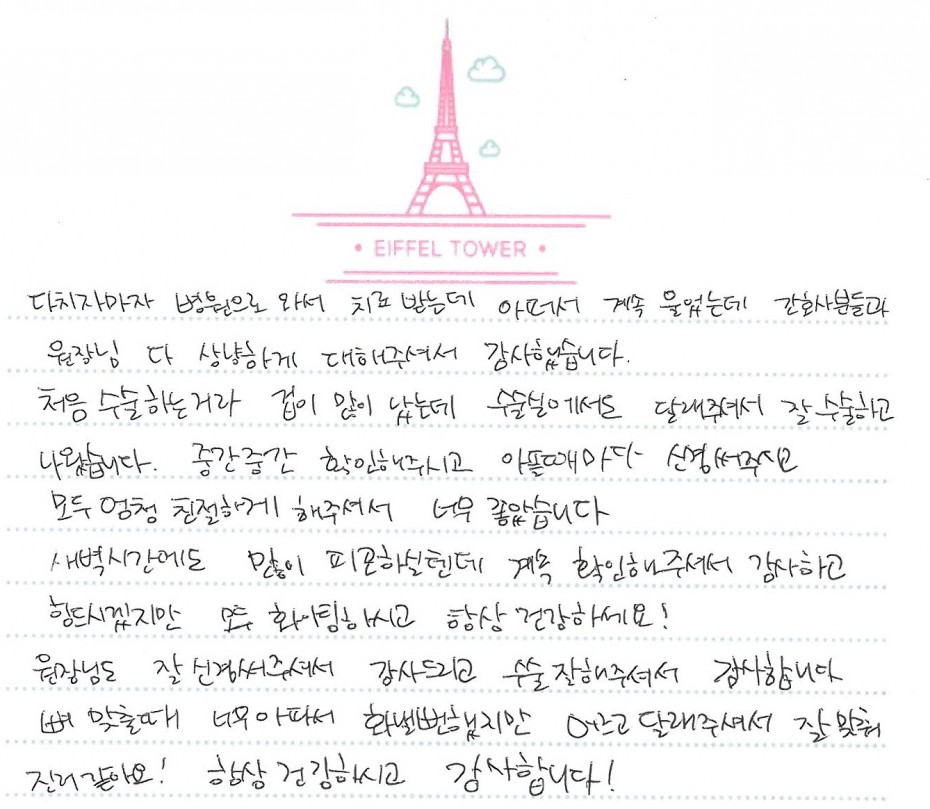 • EIFFEL TOWER •
다치자마자 병원으로 와서 치료 받는데 아퍼서 계속 울었는데 간호사분들과
원장님 다 상냥하게 대해주셔서 감사했습니다.
처음 수술하는거라 겁이 많이 났는데 수술실에서도 달래주셔서 잘 수술하고
나왔습니다. 중간중간 확인해주시고 아플때마다 신경써주시고
모두 엄청 친절하게 해주셔서 너무 좋았습니다
새벽시간에도 많이 피곤하실텐데 계속 확인해주셔서 감사하고
힘드시겠지만 모두 화이팅하시고 항상 건강하세요!
원장님도 잘 신경써주셔서 감사드리고 수술 잘해주셔서 감사합니다
뼈 맞출때 너무아파서 한 어르고 달래주셔서 잘 맞춰
진거 같아요! 항상 건강하시고 감사합니다!